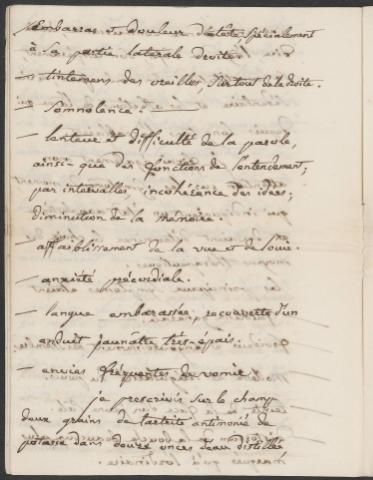 embarras et douleur de tête spécialement
à la partie latérale droite.
— tintemens des oreilles, surtout de la droite.
— Somnolence.
— lenteur et difficulté de la parole,
ainsi que des fonctions de l'entendement;
par intervalles, incohérence des idées;
diminution de la mémoire.
— affaiblissement de la vue et de l'ouie.
— anxiété précordiale.
— langue embarassée, recouverte d'un
enduit jaunâtre très-épais.
— envies fréquentes de vomir.
je prescrivis sur le champ
deux grains de tartrite antimonié de
potasse dans douze onces d'eau distillée